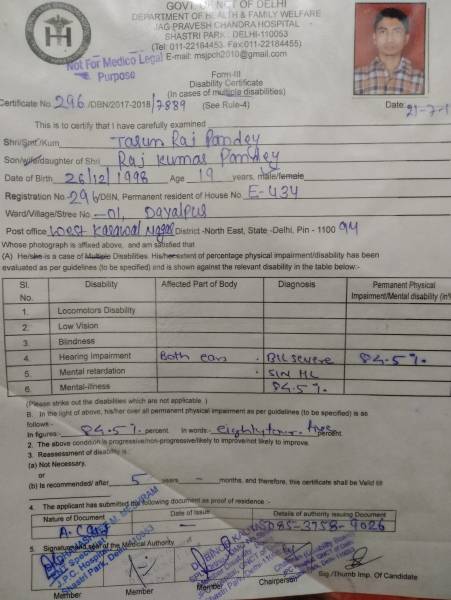 GOVT. OF NCT OF DELHI
DEPARTMENT OF HEALTH & FAMILY WELFARE
JAG PRAVESH CHANDRA HOSPITAL
SHASTRI PARK, DELHI-110053
(Tel: 011-22184453, Fax:011-22184455)
Not For Medico Legal E-mail: msjpch2010@gmail.com
Purpose
Form-III
Disability Certificate
(In cases of multiple disabilities)
Certificate No. 296/DBN/2017-2018/7839 (See Rule-4) Date: 21-7-1
This is to certify that I have carefully examined
Shri/Smt./Kum Tarun Raj Pandey
Son/wife/daughter of Shri Raj Kumar Pandey
Date of Birth 26/12/1998 Age 19 years, male/female
Registration No. 296/DBN, Permanent resident of House No. E-434
Ward/Village/Stree No. 01, Dayalpur
Post office West Karawal Nagar District -North East, State -Delhi, Pin - 1100 94
Whose photograph is affixed above, and am satisfied that
(A) He/she is a case of Multiple Disabilities. His/her extent of percentage physical impairment/disability has been
evaluated as per guidelines (to be specified) and is shown against the relevant disability in the table below:-
Sl. No. Disability Affected Part of Body Diagnosis Permanent Physical Impairment/Mental disability (in%
1. Locomotors Disability
2. Low Vision
3. Blindness
4. Hearing Impairment Both ears B/L severe 84.5%
5. Mental retardation SN HL
6. Mental-illness 84.5%
(Please strike out the disabilities which are not applicable.)
B. In the light of above, his/her over all permanent physical impairment as per guidelines (to be specified) is as
follows:-
In figures: 84.5% percent In words:- percent.
2. The above condition is progressive/non-progressive/likely to improve/not likely to improve.
3. Reassessment of disability is:
(a) Not Necessary,
or
(b) Is recommended/ after 5 years months, and therefore, this certificate shall be Valid till
4. The applicant has submitted the following document as proof of residence :-
Nature of Document Date of Issue Details of authority issuing Document
A. Card - 5085-3758-9026
5. Signature and seal of the Medical Authority.
Shastri Park, Delhi
Member Member Chairperson Sig./Thumb Imp. Of Candidate